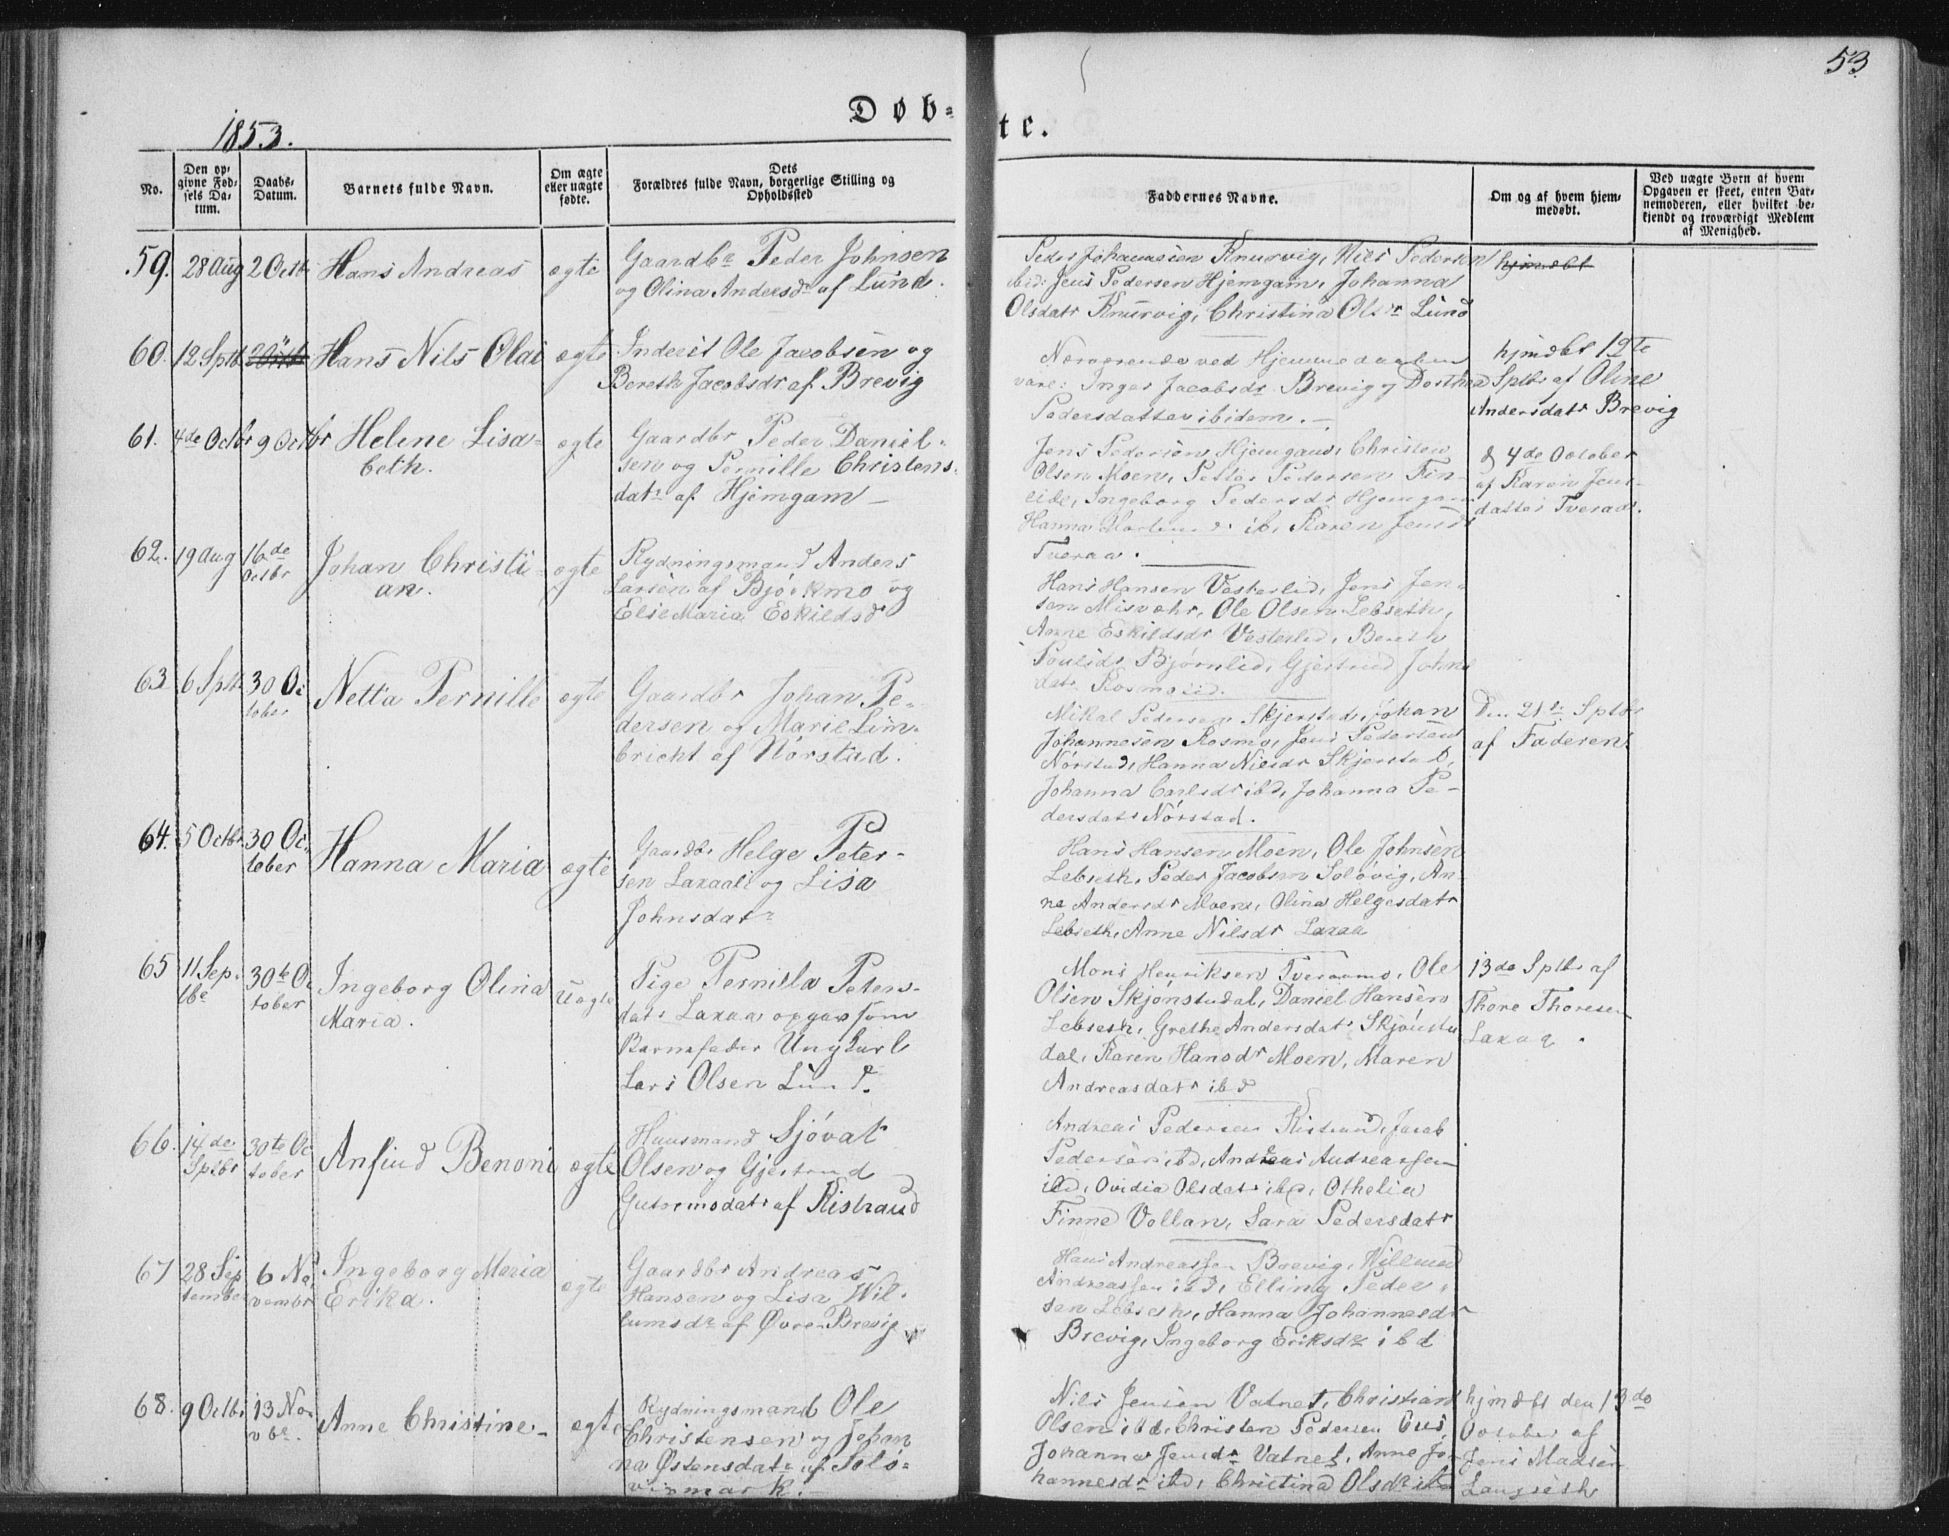 53
1853.
Døb-
te.
No.
Den op-
givne Fød-
sels Da-
tum.
Daabs-
Datum.
Barnets fulde Navn.
Om ægte
eller uægte
fødte.
Dets
Forældres fulde Navn, borgerlige Stilling og
Opholdssted
Faddernes Navne.
Om og af hvem hjem-
medøbt.
Ved uægte Børn af hvem
Opgaven er skeet, enten Bar-
nemoderen, eller hvilket be-
kjendt og troværdigt Medlem
af Menighed.
59. 28 Aug 2 Octb Hans Andreas ægte
Gaardbr Peder Johnsen
og Olina Andersdr af Lund.
Peder Johannesen Knurvig, Niels Pedersen
ibd: Jens Pedersen Hjemgam, Johanna
Olsdatr Knurvig, Christina Olsdr Lund
hjmdbt
60. 12 Sptb Hans Nils Olai ægte
Inderst Ole Jacobsen og
Bereth Jacobsdr af Brevig
Nærværende ved Hjemmedaaben
vare: Inger Jacobsdr Brevig og Dorthea
Pedersdatter ibidem.
hjmdbt 19te
Sptbr af Oline
Andersdatr Brevig
61. 4de Octbr 9 Octbr Helene Lisa-
beth. ægte
Gaardbr Peder Daniel-
sen og Pernille Christens-
datr af Hjemgam
Jens Pedersen Hjemgam, Christen
Olsen Moen, Petter Pedersen Fin-
eide, Ingeborg Pedersdr Hjemgam
Hanna ib, Karen Jensdr
Tveraa.
d 4de October
af Karen Jens-
datter Tveraa.
62. 19 Aug 16de
Octbr
Johan Christi-
an. ægte
Rydningsmand Anders
Larsen af Bjørkmo og
Else Maria Eskildsd
Hans Hansen Vesterlid, Jens Jen-
sen Misvær, Ole Olsen Lebseth,
Anne Eskildsdr Vesterlid, Bereth
Poulsdr Bjørnlid, Gjertrud Johns
datr
63 6 Sptb 30 Oc
tober
Netta Pernille ægte
Gaardbr Johan Pe-
dersen og Marie Lim-
bricht af Nørstad.
Mikal Pedersen Skjerstad, Johan
Johannesen Rosmo, Jens Pedersen
Nørstad, Hanna Nielsdr Skjerstad,
Johanna Carlsdr ibd, Johanna Pe-
dersdatr Nørstad.
Den 21de Sptbr
af Faderen
64. 5 Octbr 30 Oc
tober
Hanna Maria ægte
Gaardbr Helge Peter-
sen Laxaali og Lisa
Johnsdatr
Hans Hansen Moen, Ole Johnsen
Lebseth, Peder Jacobsen Soløvig, An
ne Andersdr Moen, Olina Helgesdatr
Lebseth, Anne Nilsdr Laxaa
65 11 Sep-
tbr
30te Oc
tober
Ingeborg Olina
Maria. Uægte
Pige Pernilla Peters-
datr Laxaa opgav som
Barnefader Ungkarl
Lars Olsen Lund.
Mons Henriksen Tveraamo, Ole
Olsen Skjønstudal, Daniel Hansen
Lebseth, Grethe Andersdatr Skjønstu
dal, Karen Hansdr Moen, Maren
Andreasdatr ibd
13de Sptbr af
Thore Thoresen
Laxaa.
66. 14de
Sptbr
30te Oc
tober
Anfind Benoni ægte
Huusmand Sjøvat
Olsen og Gjertrud
Guttormsdatr af Ristraud
Andreas Pedersen Ristraud, Jacob
Pedersen ibd, Andreas Andreassen
ibd, Ovidia Olsdatr ibd, Othelia
Finne Vollan, Sara Pedersdatr
67 28 Sep
tember
6 No
vembr
Ingeborg Maria
Erika. ægte
Gaardbr Andreas
Hansen og Lisa Wil-
lumsdr af Øvre Brevig
Hans Andreassen Brevig, Willum
Andreassen ibd, Elling Peder-
sen Lebseth, Hanna Johannesdr
Brevig, Ingeborg Eriksdr ibd
68. 9 Octbr 13 No-
vbr.
Anne Christine ægte
Rydningsmand Ole
Christensen og Johan
na Østensdatr af Solø-
vigmark.
Nils Jensen Vatnet, Christian
Olsen ibd, Christen Pedersen
Johanna Jensdr Vatnet, Anne Jo-
hannesdr ibd, Christina Olsdr ibd
hjmdbt den 13de
October af
Jens Madsen
Langseth